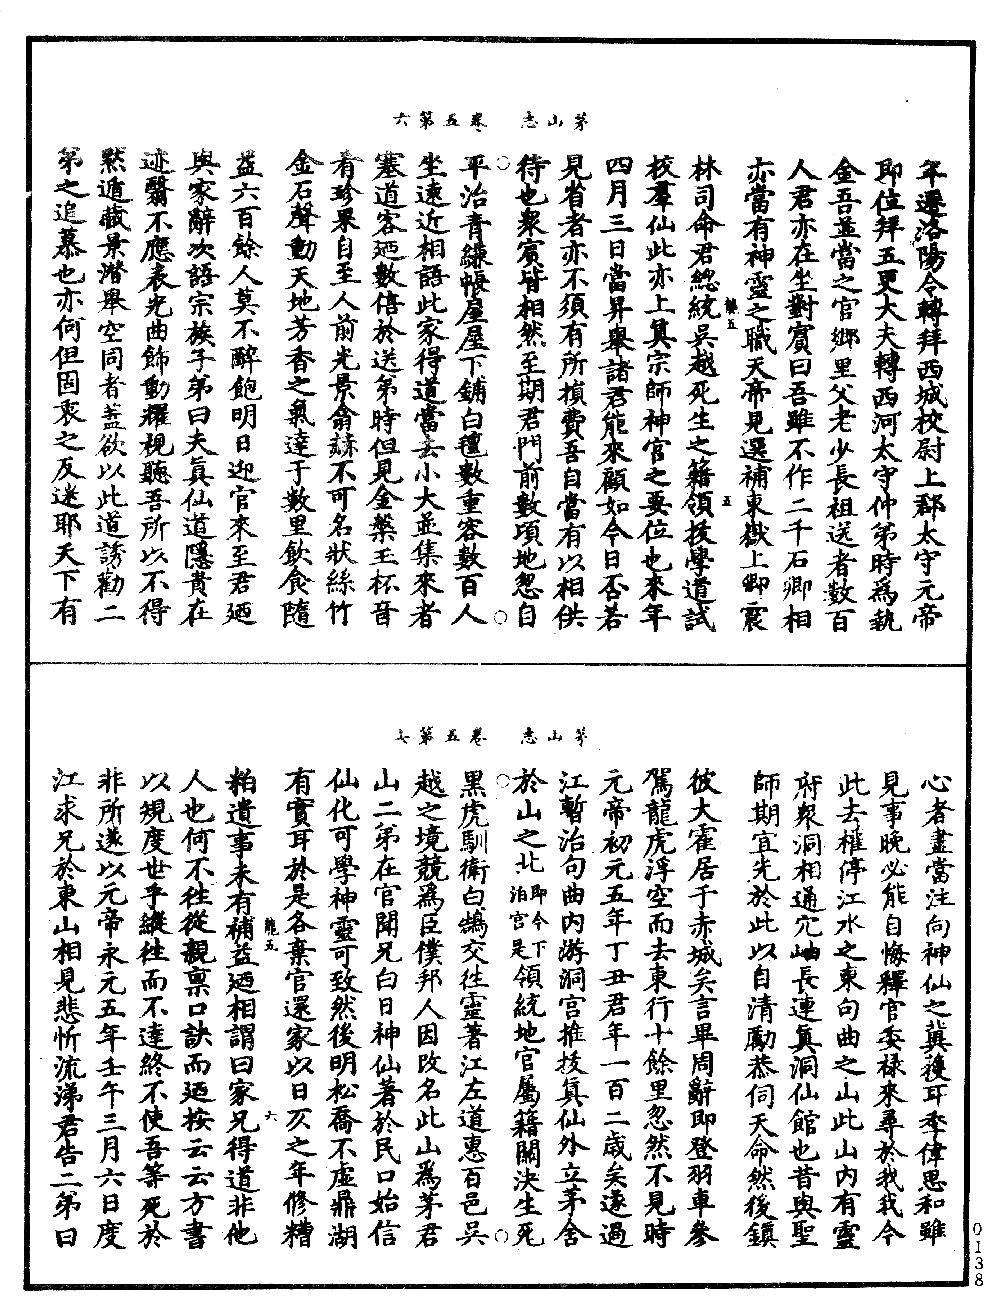 茅山志　卷五第六
年遷洛陽令轉拜西城校尉上郡太守元帝
即位拜五更大夫轉西河太守仲弟時爲執
金吾並當之官鄉里父老少長祖送者數百
人君亦在坐對賓曰吾雖不作二千石卿相
亦當有神靈之職天帝見選補東嶽上卿震
林司命君總統吳越死生之籍領授學道試
校羣仙此亦上真宗師神官之要位也來年
四月三日當昇舉諸君能來顧如今日否若
見省者亦不須有所損費吾自當有以相供
待也衆賓皆相然至期君門前數頃地忽自
平治青縑帳屋屋下鋪白氊數重容數百人
坐遠近相語此家得道當去小大並集來者
塞道客迺數倍於送弟時但見金槃玉杯音
肴珍果自至人前光景翕赫不可名狀絲竹
金石聲動天地芳香之氣達于數里飲食隨
益六百餘人莫不醉飽明日迎官來至君迺
與家辭次語宗族子弟曰夫真仙道隱貴在
迹翳不應表光曲飾動耀視聽吾所以不得
默遁藏景潛舉空同者蓋欲以此道誘勸二
弟之追慕也亦何但固衷之反迷耶天下有
茅山志　卷五第七
心者盡當注向神仙之冀獲耳季偉思和雖
見事晚必能自悔釋官委祿來尋於我我今
此去權停江水之東句曲之山此山內有靈
府衆洞相通穴岫長連真洞仙館也昔與聖
師期宜先於此以自清勵恭伺天命然後鎮
彼大霍居于赤城矣言畢周辭即登羽車參
駕龍虎浮空而去東行十餘里忽然不見時
元帝初元五年丁丑君年一百二歲矣遂過
江暫治句曲內游洞宮推授真仙外立茅舍
於山之北即今下泊宮是領統地官屬籍關決生死
黑虎馴衛白鵠交往靈著江左道惠百邑吳
越之境競爲臣僕邦人因改名此山爲茅君
山二弟在官聞兄白日神仙著於民口始信
仙化可學神靈可致然後明松喬不虛鼎湖
有實耳於是各棄官還家以日仄之年修糟
粕遺事未有補益迺相謂曰家兄得道非他
人也何不往從親稟口訣而迺按云云方書
以規度世乎縱往而不達終不使吾等死於
非所遂以元帝永元五年壬午三月六日度
江求兄於東山相見悲忻流涕君告二弟曰
龍五
五
龍五
六
0138